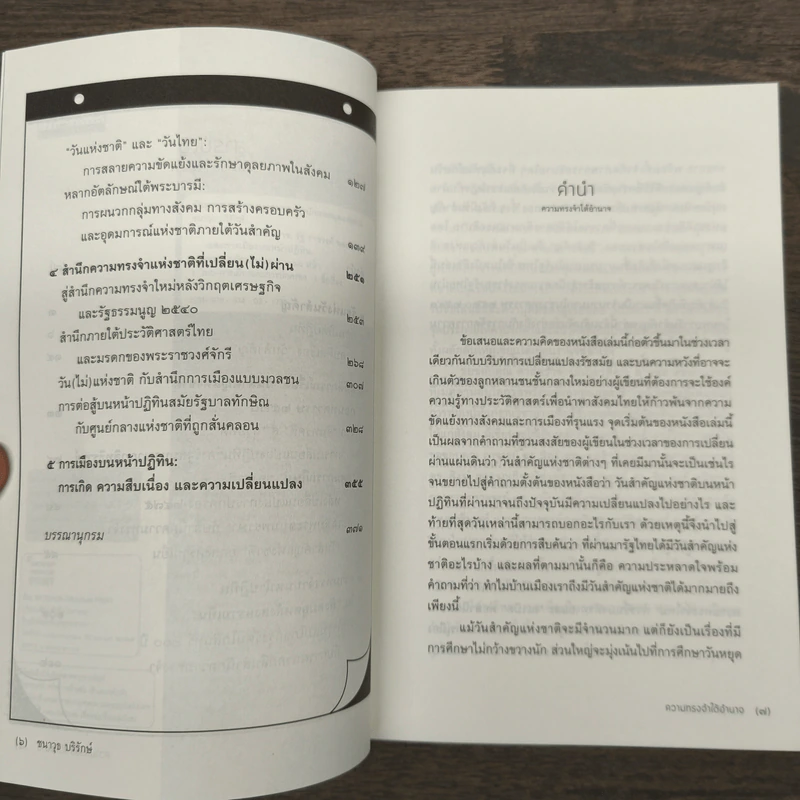 "วันแห่งชาติ" และ "วันไทย":
การสลายความขัดแย้งและรักษาดุลยภาพในสังคม ๑๒๗
หลากอัตลักษณ์ใต้พระบารมี:
การผนวกกลุ่มทางสังคม การสร้างครอบครัว
และอุดมการณ์แห่งชาติภายใต้วันสำคัญ ๑๓๙
๔ สำนึกความทรงจำแห่งชาติที่เปลี่ยน(ไม่)ผ่าน ๒๕๑
สู่สำนึกความทรงจำใหม่หลังวิกฤตเศรษฐกิจ
และรัฐธรรมนูญ ๒๕๔๐ ๒๕๓
สำนึกภายใต้ประวัติศาสตร์ไทย
และมรดกของพระราชวงศ์จักรี ๒๖๘
วัน(ไม่)แห่งชาติ กับสำนึกการเมืองแบบมวลชน ๓๐๗
การต่อสู้บนหน้าปฏิทินสมัยรัฐบาลทักษิณ
กับศูนย์กลางแห่งชาติที่ถูกสั่นคลอน ๓๒๘
๕ การเมืองบนหน้าปฏิทิน:
การเกิด ความสืบเนื่อง และความเปลี่ยนแปลง ๓๕๕
บรรณานุกรม ๓๗๑
(๖) ชนาวุธ บริรักษ์
คำนำ
ความทรงจำใต้อำนาจ
ข้อเสนอและความคิดของหนังสือเล่มนี้ก่อตัวขึ้นมาในช่วงเวลา
เดียวกันกับบริบทการเปลี่ยนแปลงรัชสมัย และบนความหวังที่อาจจะ
เกินตัวของลูกหลานชนชั้นกลางใหม่อย่างผู้เขียนที่ต้องการจะใช้องค์
ความรู้ทางประวัติศาสตร์เพื่อนำพาสังคมไทยให้ก้าวพ้นจากความ
ขัดแย้งทางสังคมและการเมืองที่รุนแรง จุดเริ่มต้นของหนังสือเล่มนี้
เป็นผลจากคำถามที่ชวนสงสัยของผู้เขียนในช่วงเวลาของการเปลี่ยน
ผ่านแผ่นดินว่า วันสำคัญแห่งชาติต่างๆ ที่เคยมีมานั้นจะเป็นเช่นไร
จนขยายไปสู่คำถามตั้งต้นของหนังสือว่า วันสำคัญแห่งชาติบนหน้า
ปฏิทินที่ผ่านมาจนถึงปัจจุบันมีความเปลี่ยนแปลงไปอย่างไร และ
ท้ายที่สุดวันเหล่านี้สามารถบอกอะไรกับเรา ด้วยเหตุนี้จึงนำไปสู่
ขั้นตอนแรกเริ่มด้วยการสืบค้นว่า ที่ผ่านมารัฐไทยได้มีวันสำคัญแห่ง
ชาติอะไรบ้าง และผลที่ตามมานั้นก็คือ ความประหลาดใจพร้อม
คำถามที่ว่า ทำไมบ้านเมืองเราถึงมีวันสำคัญแห่งชาติได้มากมายถึง
เพียงนี้
แม้วันสำคัญแห่งชาติจะมีจำนวนมาก แต่ก็ยังเป็นเรื่องที่มี
การศึกษาไม่กว้างขวางนัก ส่วนใหญ่จะมุ่งเน้นไปที่การศึกษาวันหยุด
ความทรงจำใต้อำนาจ (๗)